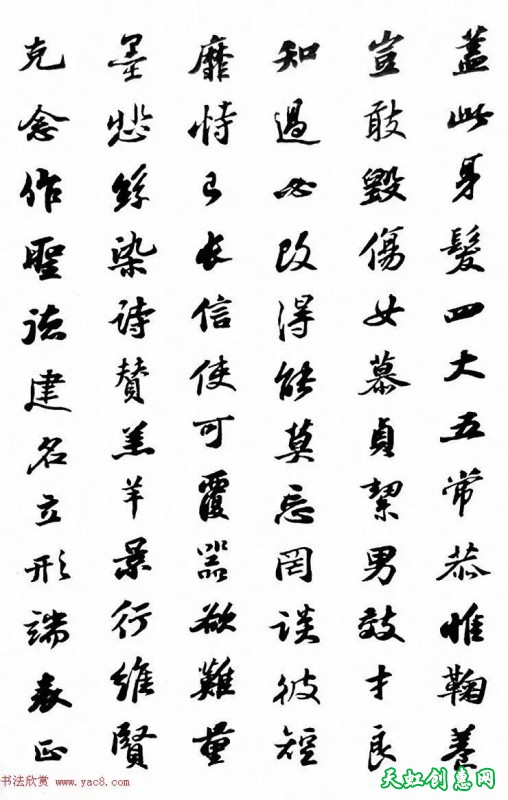 盖此身髮四大五常恭惟鞠養
豈敢毀傷女慕貞絜男效才良
知過必改得能莫忘罔談彼短
靡恃己長信使可覆器欲難量
墨悲絲染詩贊羔羊景行維賢
克念作聖德建名立形端表正
书法欣赏 www.yac8.com
天虹创惠网